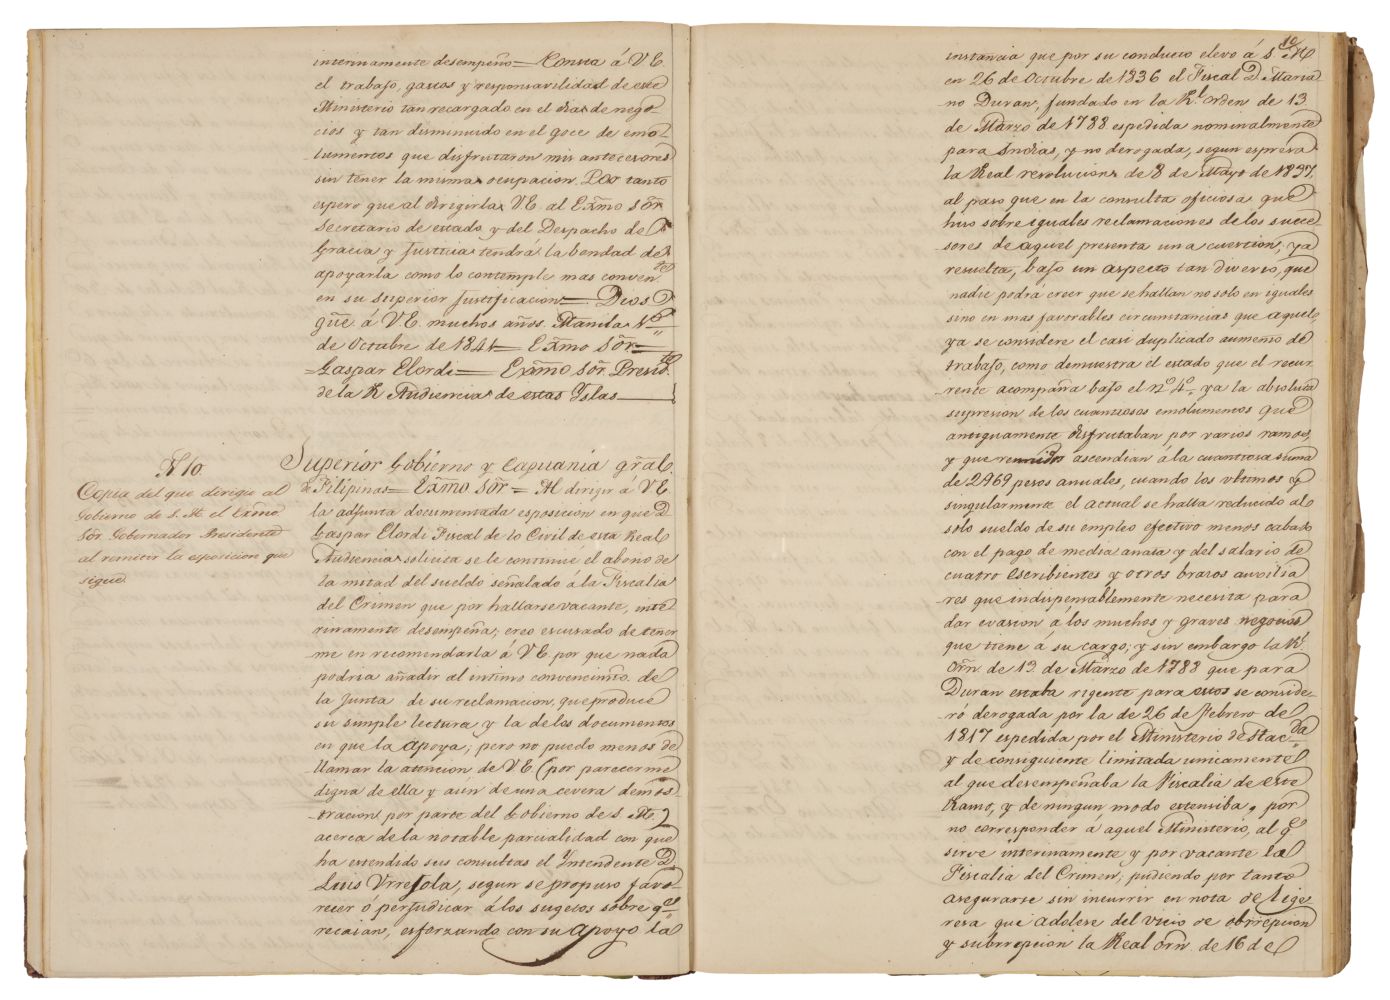 interinamente desempeño = Consta á V E.
el trabajo, gastos y responsavilidad de este
Ministerio tan recargado en el dia de nego-
cios y tan disminuido en el goce de emo-
lumentos que disfrutaron mis antecesores
sin tener la misma ocupacion. Por tanto
espero que al dirigirla V E. al Exmo Sõr
Secretario de estado y del Despacho de
Gracia y Justicia tendrá la bondad de
apoyarla como lo contemple mas conven.te
en su superior justificacion = Dios
gũe. á V E. muchos años. Manila
de Octubre de 1841 = Exmo Sõr =
= Gaspar Elordi = Exmo Sõr. Presid.te
de la R Audiencia de estas Yslas
N 10.
Copia del que dirigue al
Gobierno de S. M. el Exmo
Sõr. Gobernador Presidente
al remitir la esposicion que
sigue
Superior Gobierno y Capitania grãl.
de Filipinas = Exmo Sõr = Al dirigir á V E.
la adjunta documentada esposicion en que D.
Gaspar Elordi Fiscal de lo Civil de esta Real
Audiencia solicita se le continue el abono de
la mitad del sueldo señalado á la Fiscalia
del Crimen que por hallarse vacante, inte-
rinamente desempeña; creo escusado deteñer
me en recomendarla á V E. por que nada
podria añadir al intimo convencimto. de
la Junta de su reclamacion, que produce
su simple lectura y la de los documentos
en que la apoya; pero no puedo menos de
llamar la atencion de V E. (por parecerme
digna de ella y aun de una cevera demos-
-tracion por parte del Gobierno de S. M.)
acerca de la notable parcialidad con que
ha estendido sus consultas el Yntendente D.
Luis Urrejola, segun se propuso favo-
recer ó perjudicar á los sugetos sobre q.es
recaian, esforzando con su apoyo la
10
instancia que por su conducto elevo á S. M
en 26 de Octubre de 1836 el Fiscal D. Maria
no Duran, fundado en la Rl. orden de 13.
de Marzo de 1788. espedida nominalmente
para Indias, y no derogada, segun espresa
la Real resolucion de 8 de Mayo de 1837,
al paso que en la consulta oficiosa que
hiso sobre iguales reclamaciones de los succe-
sores de aquel presenta una cuestion, ya
resuelta, bajo un aspecto tan diverso, que
nadie podrá creer que se hallan no solo en iguales
sino en mas favorables circunstancias que aquel,
ya se considere el casi duplicado aumento de
trabajo, como demuestra el estado que el recur
rente acompaña bajo el nº. 4º. ya la absoluta
supresion de los cuantiosos emolumentos que
antiguamente disfrutaban por varios ramos,
y que reunidos ascendian á la cuantiosa suma
de 2969 pesos anuales, cuando los ultimos y
singularmente el actual se halla reducido al
solo sueldo de su empleo efectivo menos cabado
con el pago de media anata y del salario de
cuatro escribientes y otros brasos auxilia
-res que indispensablemente necesita para
dar evasion á los muchos y graves negocios
que tiene á su cargo; y sin embargo la Rl.
Orñ. de 13. de Marzo de 1788 que para
Duran estaba rigente para estos se conside-
ró derogada por la de 26 de Febrero de
1817 espedida por el Ministerio de Hac.da
y de consiguiente limitada unicamente
al que desempeñaba la Fiscalia de este
Ramo, y de ningun modo estensiba, por
no corresponder á aquel Ministerio, al q.e
sirve interinamente y por vacante la
Fiscalia del Crimen; pudiendo por tanto
asegurarse sin incurrir en nota de lige-
resa que adolese del vicio de obrrepcion
y subrrepcion la Real orñ. de 16 de